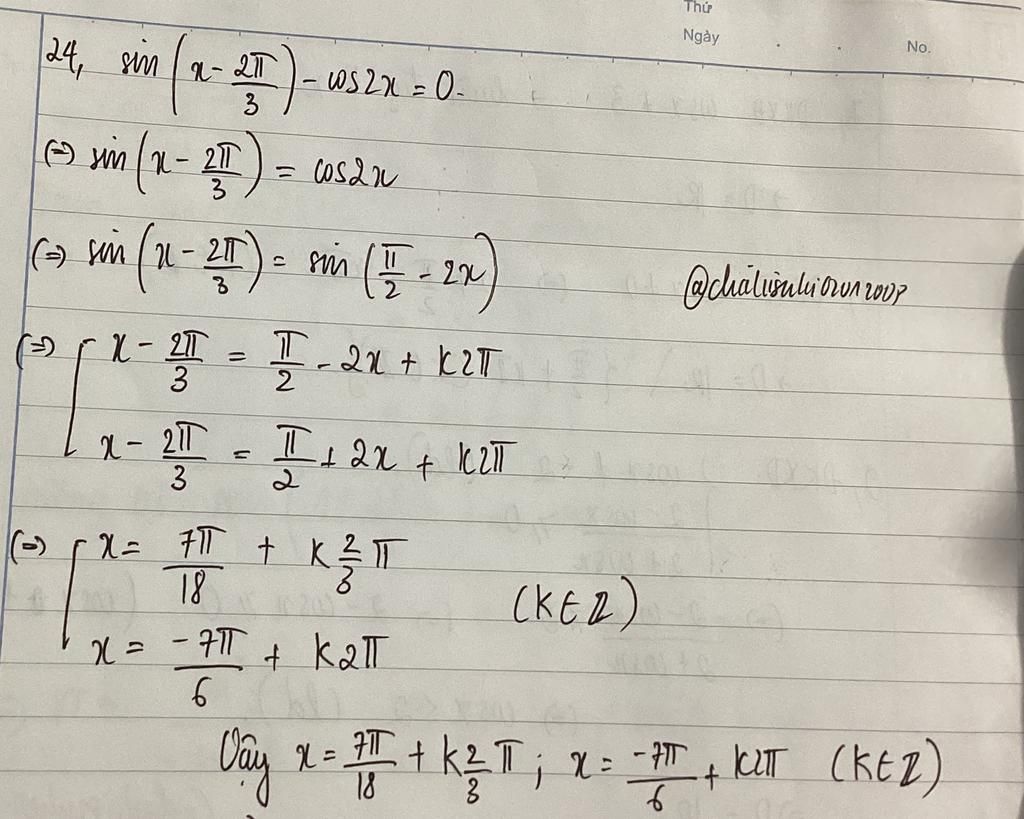 Thứ
Ngày
No.
24, sin(x - 2π/3) - cos2x = 0.
(=) sin(x - 2π/3) = cos2x
(=) sin(x - 2π/3) = sin(π/2 - 2x)
(=) [ x - 2π/3 = π/2 - 2x + k2π
x - 2π/3 = π/2 + 2x + k2π
(=) [ x = 7π/18 + k 2/3 π
(k ∈ Z)
x = -7π/6 + k2π
Vậy x = 7π/18 + k 2/3 π ; x = -7π/6 + k2π (k ∈ Z)